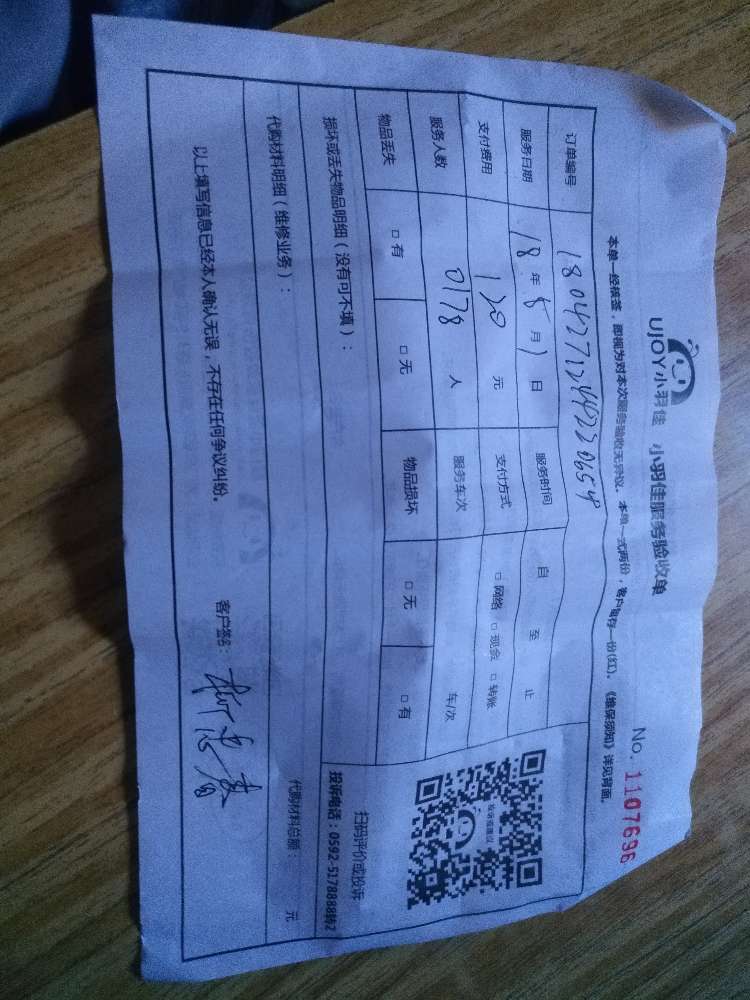 UJOY小羽佳 小羽佳服务验收单
No. 1107696
本单一经核签，即视为对本次服务验收无异议。本单一式两份，客户留存一份(红)。《维保须知》详见背面。
订单编号
服务日期 18 年 5 月 1 日 服务时间 自 至 止
支付费用 120 元 支付方式 □ 网络 □ 现金 □ 转账
服务人数 0178 人 服务车次 车/次
物品丢失 □ 有 □ 无 物品损坏 □ 无 □ 有
扫码评价或投诉
投诉电话：0592-5178888转2
损坏或丢失物品明细（没有可不填）：
代购材料明细（维修业务）： 代购材料总额： 元
以上填写信息已经本人确认无误，不存在任何争议纠纷。 客户签名：